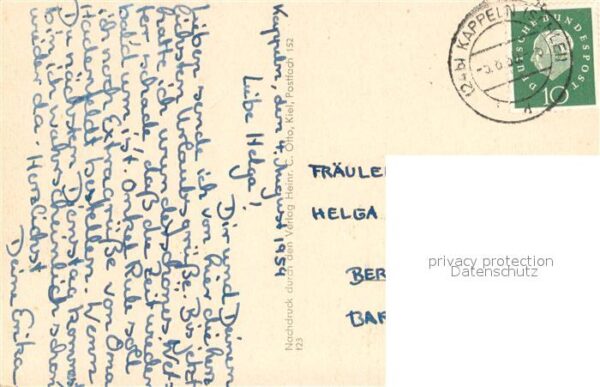 Kappeln, den 4. August 1959
Liebe Helga!
Dir und Deinen
Lieben sende ich von hier die herz-
lichsten Urlaubsgrüße. Bis jetzt
hatte ich wunderschönes Wet-
ter schade, daß die Zeit wieder
bald um ist. Onkel Rule soll
ich noch Extragrüße von Oma
Hadenfeldt bestellen. Wenn
Du nächsten Dienstag kommst
bin ich wahrscheinlich schon
wieder da. Herzlichst
Deine Erika
Nachdruck durch den Verlag Heinr. C. Otto, Kiel, Postfach 152
123
(24b) KAPPELN
DEUTSCHE BUNDESPOST
10
FRÄULE
HELGA
BER
BA
privacy protection
Datenschutz